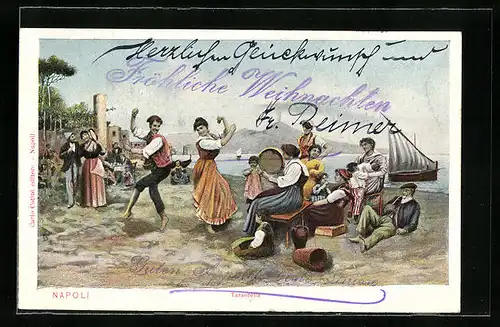 Herzlichen Glückwunsch und
Fröhliche Weihnachten
Fr. Reimer
Guten
Carlo Cotini editore - Napoli
NAPOLI
Tarantella